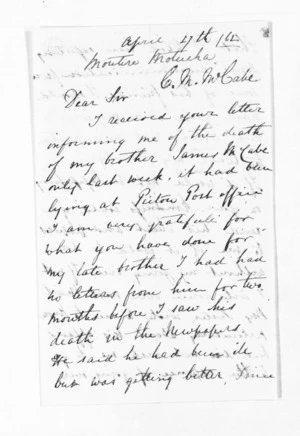 April 27th / 64
Moutere Motueka
C. M. McCabe
Dear Sir
I received your letter
informing me of the death
of my brother James McCabe
only last week, it had been
lying at Picton Post office
I am very grateful for
what you have done for
my late brother I had had
no letters from him for two
months before I saw his
death in the Newspapers.
He said he had been ill
but was getting better,